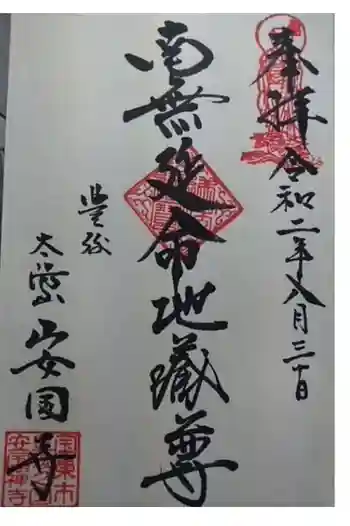 奉拝 令和二年八月三十日
南無延命地蔵尊
豊後
太陽山安国寺
国東市
安国禅寺